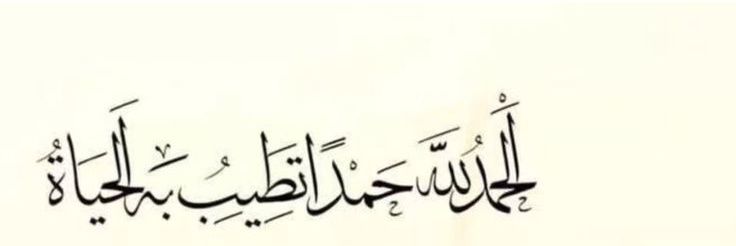 الْحَمْدُ لِلَّهِ حَمْدًا تَطِيبُ بِهِ الْحَيَاةُ